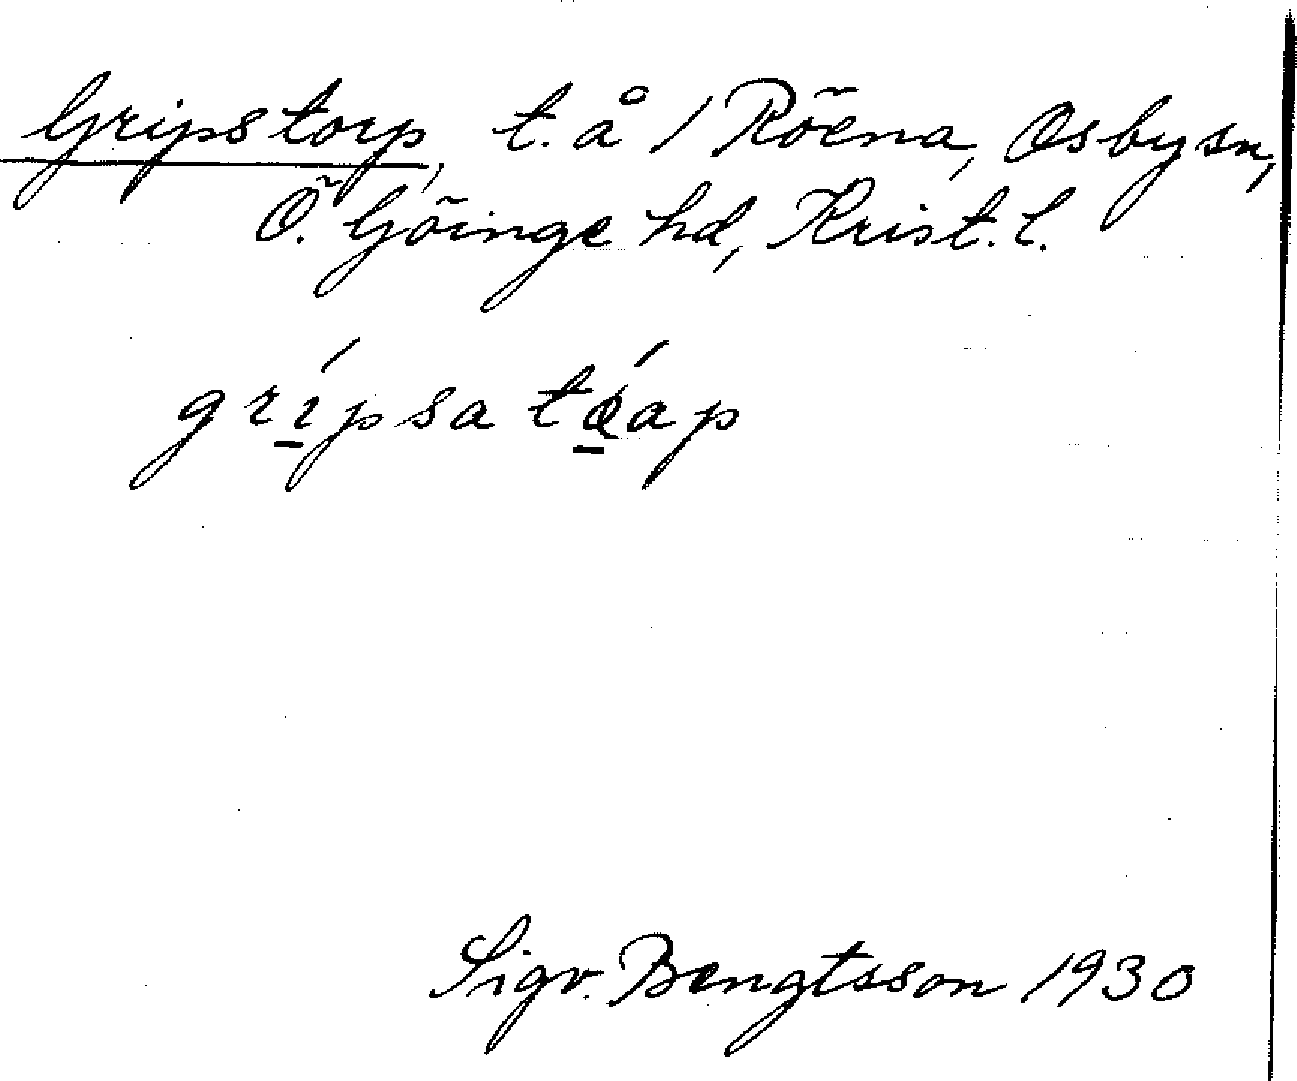 Gripstorp, t. å 1 Röena, Osby sn,
Ö. Göinge hd, Krist. l.
grípsa táap
Sigv. Bengtsson 1930